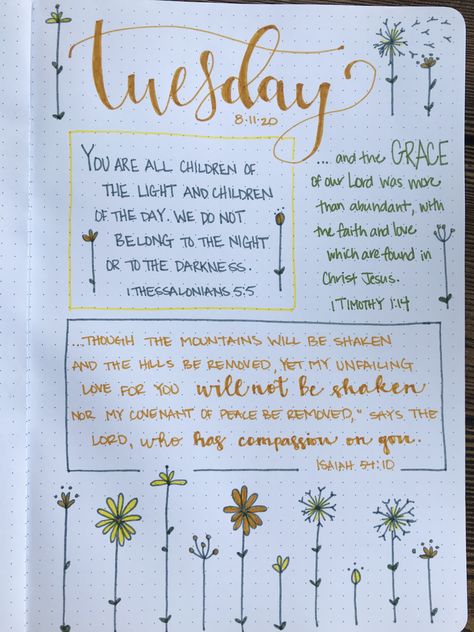 tuesday
8.11.20
YOU ARE ALL CHILDREN OF
THE LIGHT AND CHILDREN
OF THE DAY. WE DO NOT
BELONG TO THE NIGHT
OR TO THE DARKNESS.
1 THESSALONIANS 5:5
... and the GRACE
of our Lord was more
than abundant, with
the faith and love
which are found in
Christ Jesus.
1 TIMOTHY 1:14
...THOUGH THE MOUNTAINS WILL BE SHAKEN
AND THE HILLS BE REMOVED, YET MY UNFAILING
LOVE FOR YOU will not be shaken
NOR MY COVENANT OF PEACE BE REMOVED," SAYS THE
LORD, who has compassion on you.
ISAIAH 54:10